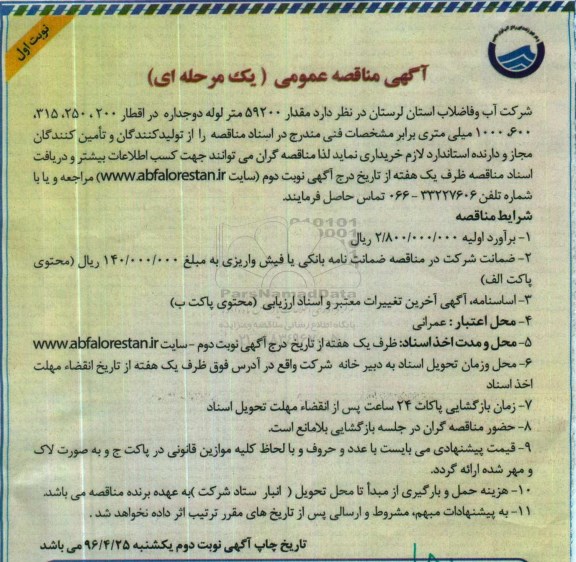 نوبت اول
آگهی مناقصه عمومی ( یک مرحله ای)
شرکت آب وفاضلاب استان لرستان در نظر دارد مقدار ۵۹۲۰۰ متر لوله دوجداره در اقطار ۲۰۰، ۲۵۰، ۳۱۵،
۶۰۰، ۱۰۰۰ میلی متری برابر مشخصات فنی مندرج در اسناد مناقصه را از تولیدکنندگان و تأمین کنندگان
مجاز و دارنده استاندارد لازم خریداری نماید لذا مناقصه گران می توانند جهت کسب اطلاعات بیشتر و دریافت
اسناد مناقصه ظرف یک هفته از تاریخ درج آگهی نوبت دوم (سایت www.abfalorestan.ir) مراجعه و یا با
شماره تلفن ۳۳۲۲۷۶۰۶ - ۰۶۶ تماس حاصل فرمایند.
شرایط مناقصه
۱- برآورد اولیه ۲/۸۰۰/۰۰۰/۰۰۰ ریال
۲- ضمانت شرکت در مناقصه ضمانت نامه بانکی یا فیش واریزی به مبلغ ۱۴۰/۰۰۰/۰۰۰ ریال (محتوی
پاکت الف)
ParsNamadData
۳- اساسنامه، آگهی آخرین تغییرات معتبر و اسناد ارزیابی (محتوی پاکت ب)
پایگاه اطلاع رسانی مناقصه و مزایده
۴- محل اعتبار : عمرانی
۵- محل و مدت اخذ اسناد: ظرف یک هفته از تاریخ درج آگهی نوبت دوم - سایت www.abfalorestan.ir
۶- محل وزمان تحویل اسناد به دبیر خانه شرکت واقع در آدرس فوق ظرف یک هفته از تاریخ انقضاء مهلت
اخذ اسناد
۷- زمان بازگشایی پاکات ۲۴ ساعت پس از انقضاء مهلت تحویل اسناد
۸- حضور مناقصه گران در جلسه بازگشایی بلامانع است.
۹- قیمت پیشنهادی می بایست با عدد و حروف و با لحاظ کلیه موازین قانونی در پاکت ج و به صورت لاک
و مهر شده ارائه گردد.
۱۰- هزینه حمل و بارگیری از مبدأ تا محل تحویل ( انبار ستاد شرکت )به عهده برنده مناقصه می باشد.
۱۱- به پیشنهادات مبهم، مشروط و ارسالی پس از تاریخ های مقرر ترتیب اثر داده نخواهد شد .
تاریخ چاپ آگهی نوبت دوم یکشنبه ۹۶/۴/۲۵ می باشد